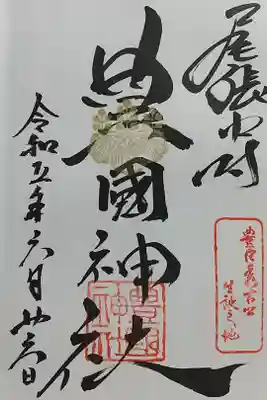 尾張中村
豊國神社
令和五年六月廿三日
豊臣秀吉公
生誕之地